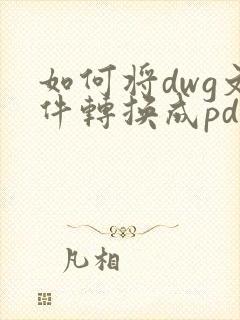 如何将dwg文
件轉換成pd
凡相